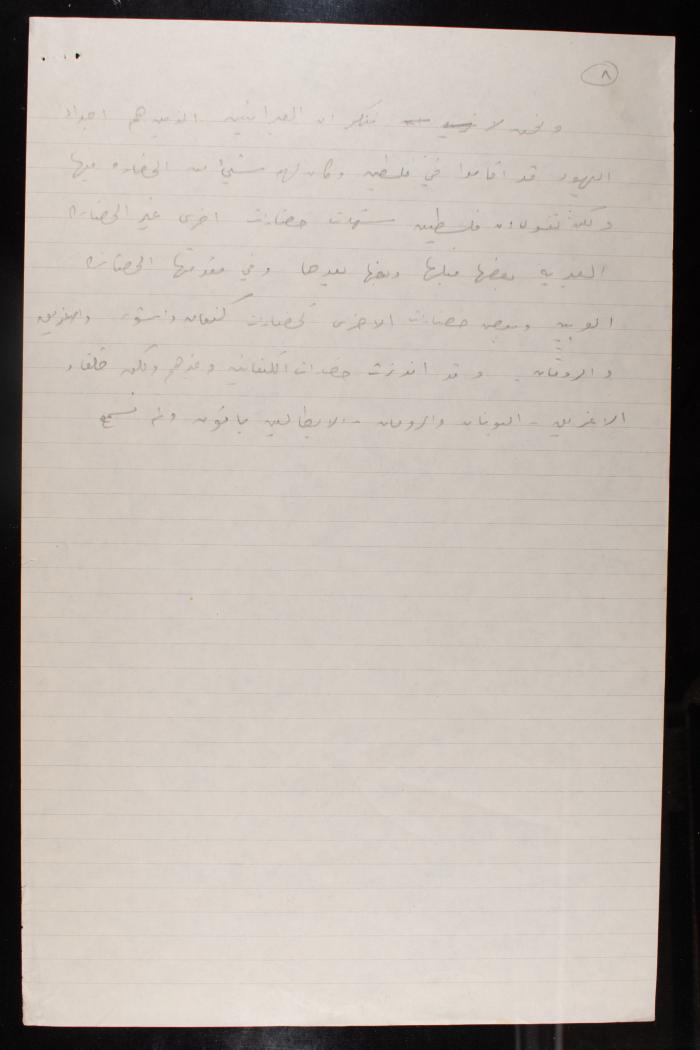 ٨
ونحن لا ننكر ان العبرانيين الذين هم اجداد
اليهود قد اقاموا في فلسطين وكان لهم شيئ من الحضاره فيها
ولكن نقول ان فلسطين شهدت حضارات اخرى غير الحضارة
العبريه بعضها قبلها وبعضها بعدها وفي مقدمتها الحضارة
العربيه وبعض حضارات الاخرى كحضارات كنعان واشور واغريق
والرومان وقد اندثرت حضارات الكنعانيين وغيرهم ولكن خلفاء
الاغريق - اليونان والرومان - الايطاليين باقون ولم نسمع